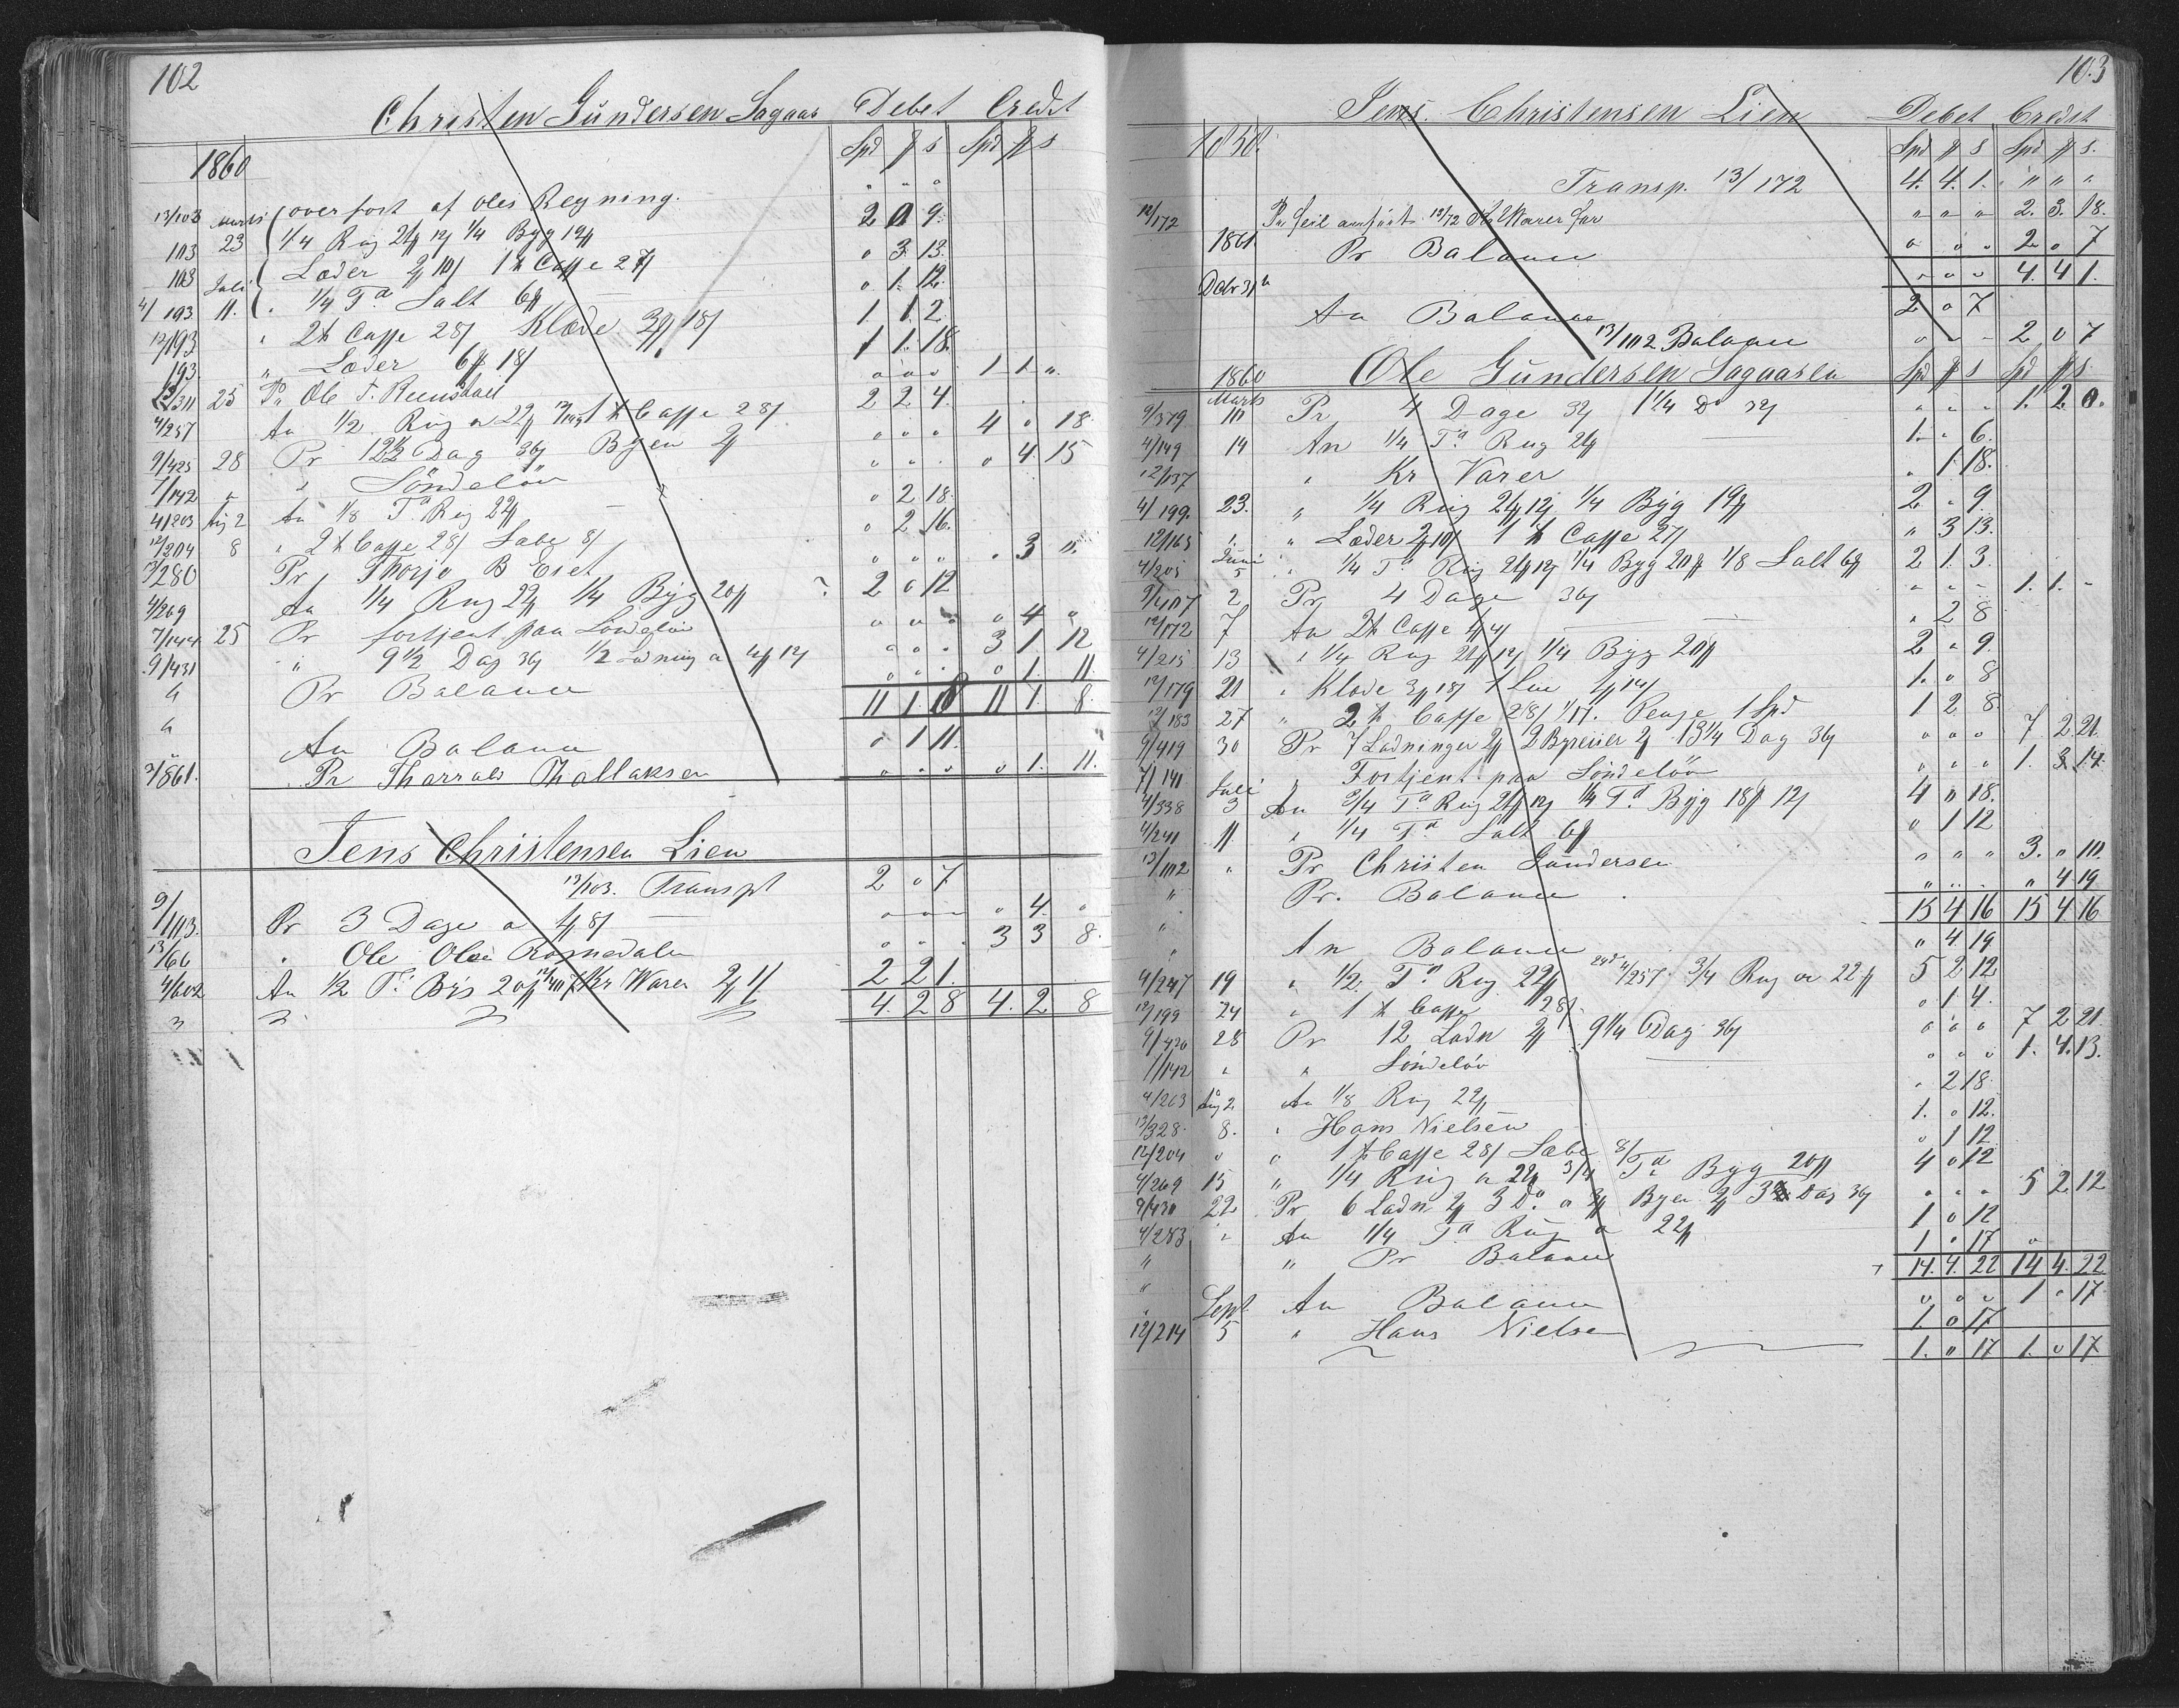 102
Christen Gundersen Sagaas Debet Credit
1860 Spd # s Spd # s
overfort af Oles Regning. " " "
13/103 Marts 23 1/4 Rug 21# 12 1/4 Byg 19# 2 0 9
103 Læder 2# 10 1 ℔ Caffe 27 " 3. 13.
103 Juli 11. " 1/4 Tª Salt 6# " 1. 12.
4/193 " 2 ℔ Caffe 28 Klæde 3# 18 1 1. 2
12/193 " Læder 6# 18 1 1. 18.
193. Pr Ole T. " " " 1 1. "
25 An 1/2 Rug a 22# 1 ℔ Caffe 28 2 2 4.
4/257 Pr 12 1/2 Dag 36 Byen 2# " " " 4 " 18
9/425 28 " Söndelöv " " " " 4. 15
7/142 " An 1/8 Tª Rug 22# " 2 18.
4/203 Aug 2 " 2 ℔ Caffe 28 Sæbe 8 " 2 16.
12/204 8 Pr Thorje B Eset " " " " 3 "
13/280 An 1/4 Rug 22# 1/4 Byg 20# 2 " 12
4/269 Pr fortjent paa Söndelöv " " " " 4 "
7/144 25 " 9 1/2 Dag 36 1/2 Ladning a 4# 12 " " " 3 1. 12
9/431 Pr Balance " " " " 1. 11.
11 1. 8 11 1. 8.
An Balance " 1 11.
1861. Pr Tharrald Thallaksen " " " " 1. 11.
Jens Christensen Lien
13/103. Transpt 2 " 7
9/113. Pr 3 Dage a 1# 8 " " " " 4. "
13/66 " Ole Olsen Romedalen " " " 3 3 8.
4/602 An 1/2 Tª Bÿg 20# Kr Warer 2# 1 2 2 1.
4. 2 8 4. 2 8
103
Jens Christensen Lien Debet Credit
1858. Spd # s Spd # s.
Transp. 13/172 4. 4. 1. " " "
12/172 Pr Feil anfört 12/72 " " " 2. 3. 18.
1861 Pr Balance " " " 2 " 7
Debr 31 " " " 4. 4 1.
An Balance 2 " 7
13/102 Balance " " " 2 0 7
1860 Ole Gundersen Sagaasen Spd # s Spd # s
9/379 Marts 10 Pr 4 Dage 32 1 1/4 Do 32 " " " 1. 2 0.
4/149 14 An 1/4 Tª Rug 24# 1. " 6.
12/137 " Kr Varer " 1 18.
4/199. 23. " 1/4 Rug 21# 12 1/4 Byg 19# 2 " 9
12/165 " " Læder 2# 10 1 ℔ Caffe 27 " 3 13.
4/205 Juni 5 " 1/4 Tª Rug 21# 12 1/4 Byg 20# 1/8 Salt 6# 2 1. 3.
9/407 2 Pr 4 Dage 36 " " " 1. 1. "
12/172 7 An 2 ℔ Caffe " 2 8
4/215 13 " 1/4 Rug 21# 12 1/4 Byg 20# 2 " 9.
12/179 21 " Klæde 3# 18 1. 0 8
12/183 27 " 2 ℔ Caffe 28 Penge 1 Spd 1 2 8.
9/419 30 Pr 7 Ladninger 2# 2 Byreiser 2# 13 1/4 Dag 36 " " " 7 2 21.
7/141 " Fortjent paa Söndelöv " " " 1. 3. 14.
4/338 Juli 3 An 3/4 Tª Rug 21# 12 1/4 Tª Byg 18# 12 4 " 18.
4/241 11. " 1/4 Tª Salt 6# " 1 12
13/102 " Pr Christen Gundersen " " " 3. " 10.
" Pr. Balance " " " " 4 19
15 4 16 15 4 16
An Balance " 4 19
4/247 19 " 1/2 Tª Rug 22# 4/257 3/4 Rug a 22# 5 2 12
12/199 24 " 1 ℔ Caffe 28 " 1 4.
9/426 28 Pr 12 Ladn 2# 9 1/4 Dag 36 " " " 7 2 21.
7/142 " " Söndelöv " " " 1. 4. 13.
4/203 Aug 2 An 1/8 Rug 22# " 2 18
13/328 8. " Hans Nielsen 1. " 12.
12/204 " " 1 ℔ Caffe 28 Sæbe 8 " 1 12
4/269 15 " 1/4 Rug a 22# 3/4 Tª Byg 20# 4 " 12
9/430 22 Pr 6 Ladn 2# 3 Do a 3# Byen 2# Dag 36 " " " 5 2 12
4/283 " An 1/4 Tª Rug a 22# 1 0 12
" " Pr Balance 1 " 17 "
14. 4. 22 14 4. 22
Sept An Balance " " " 1 " 17
12/214 5 " Hans Nielsen 1. 0 17
1. " 17 1. " 17